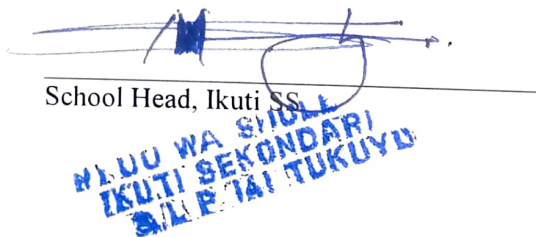 School Head, Ikuti SS
WA SHULE
IKUTI SEKONDARI
TUKUYU